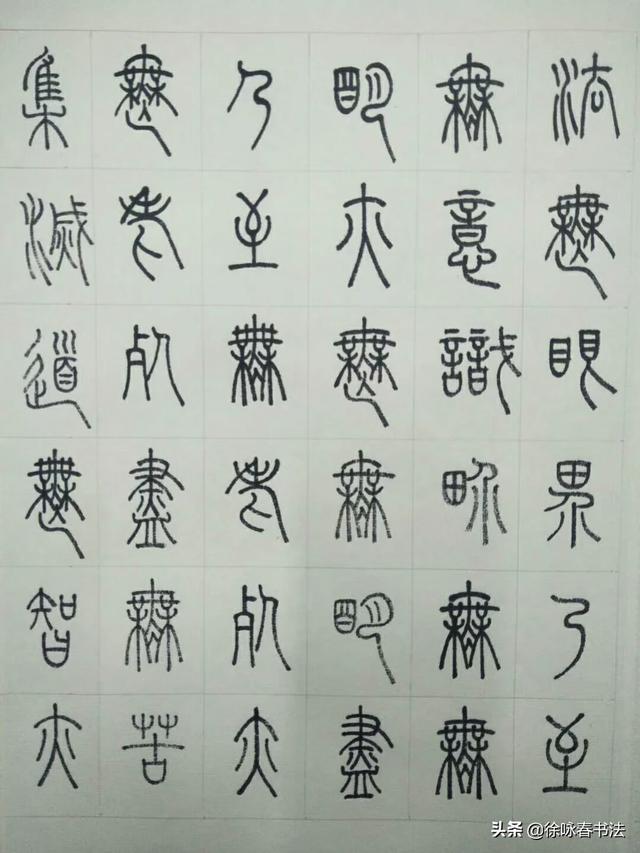 法無眼界乃至
無意識界無無
明亦無無明盡
乃至無老死亦
無老死盡無苦
集滅道無智亦
头条 @徐咏春书法